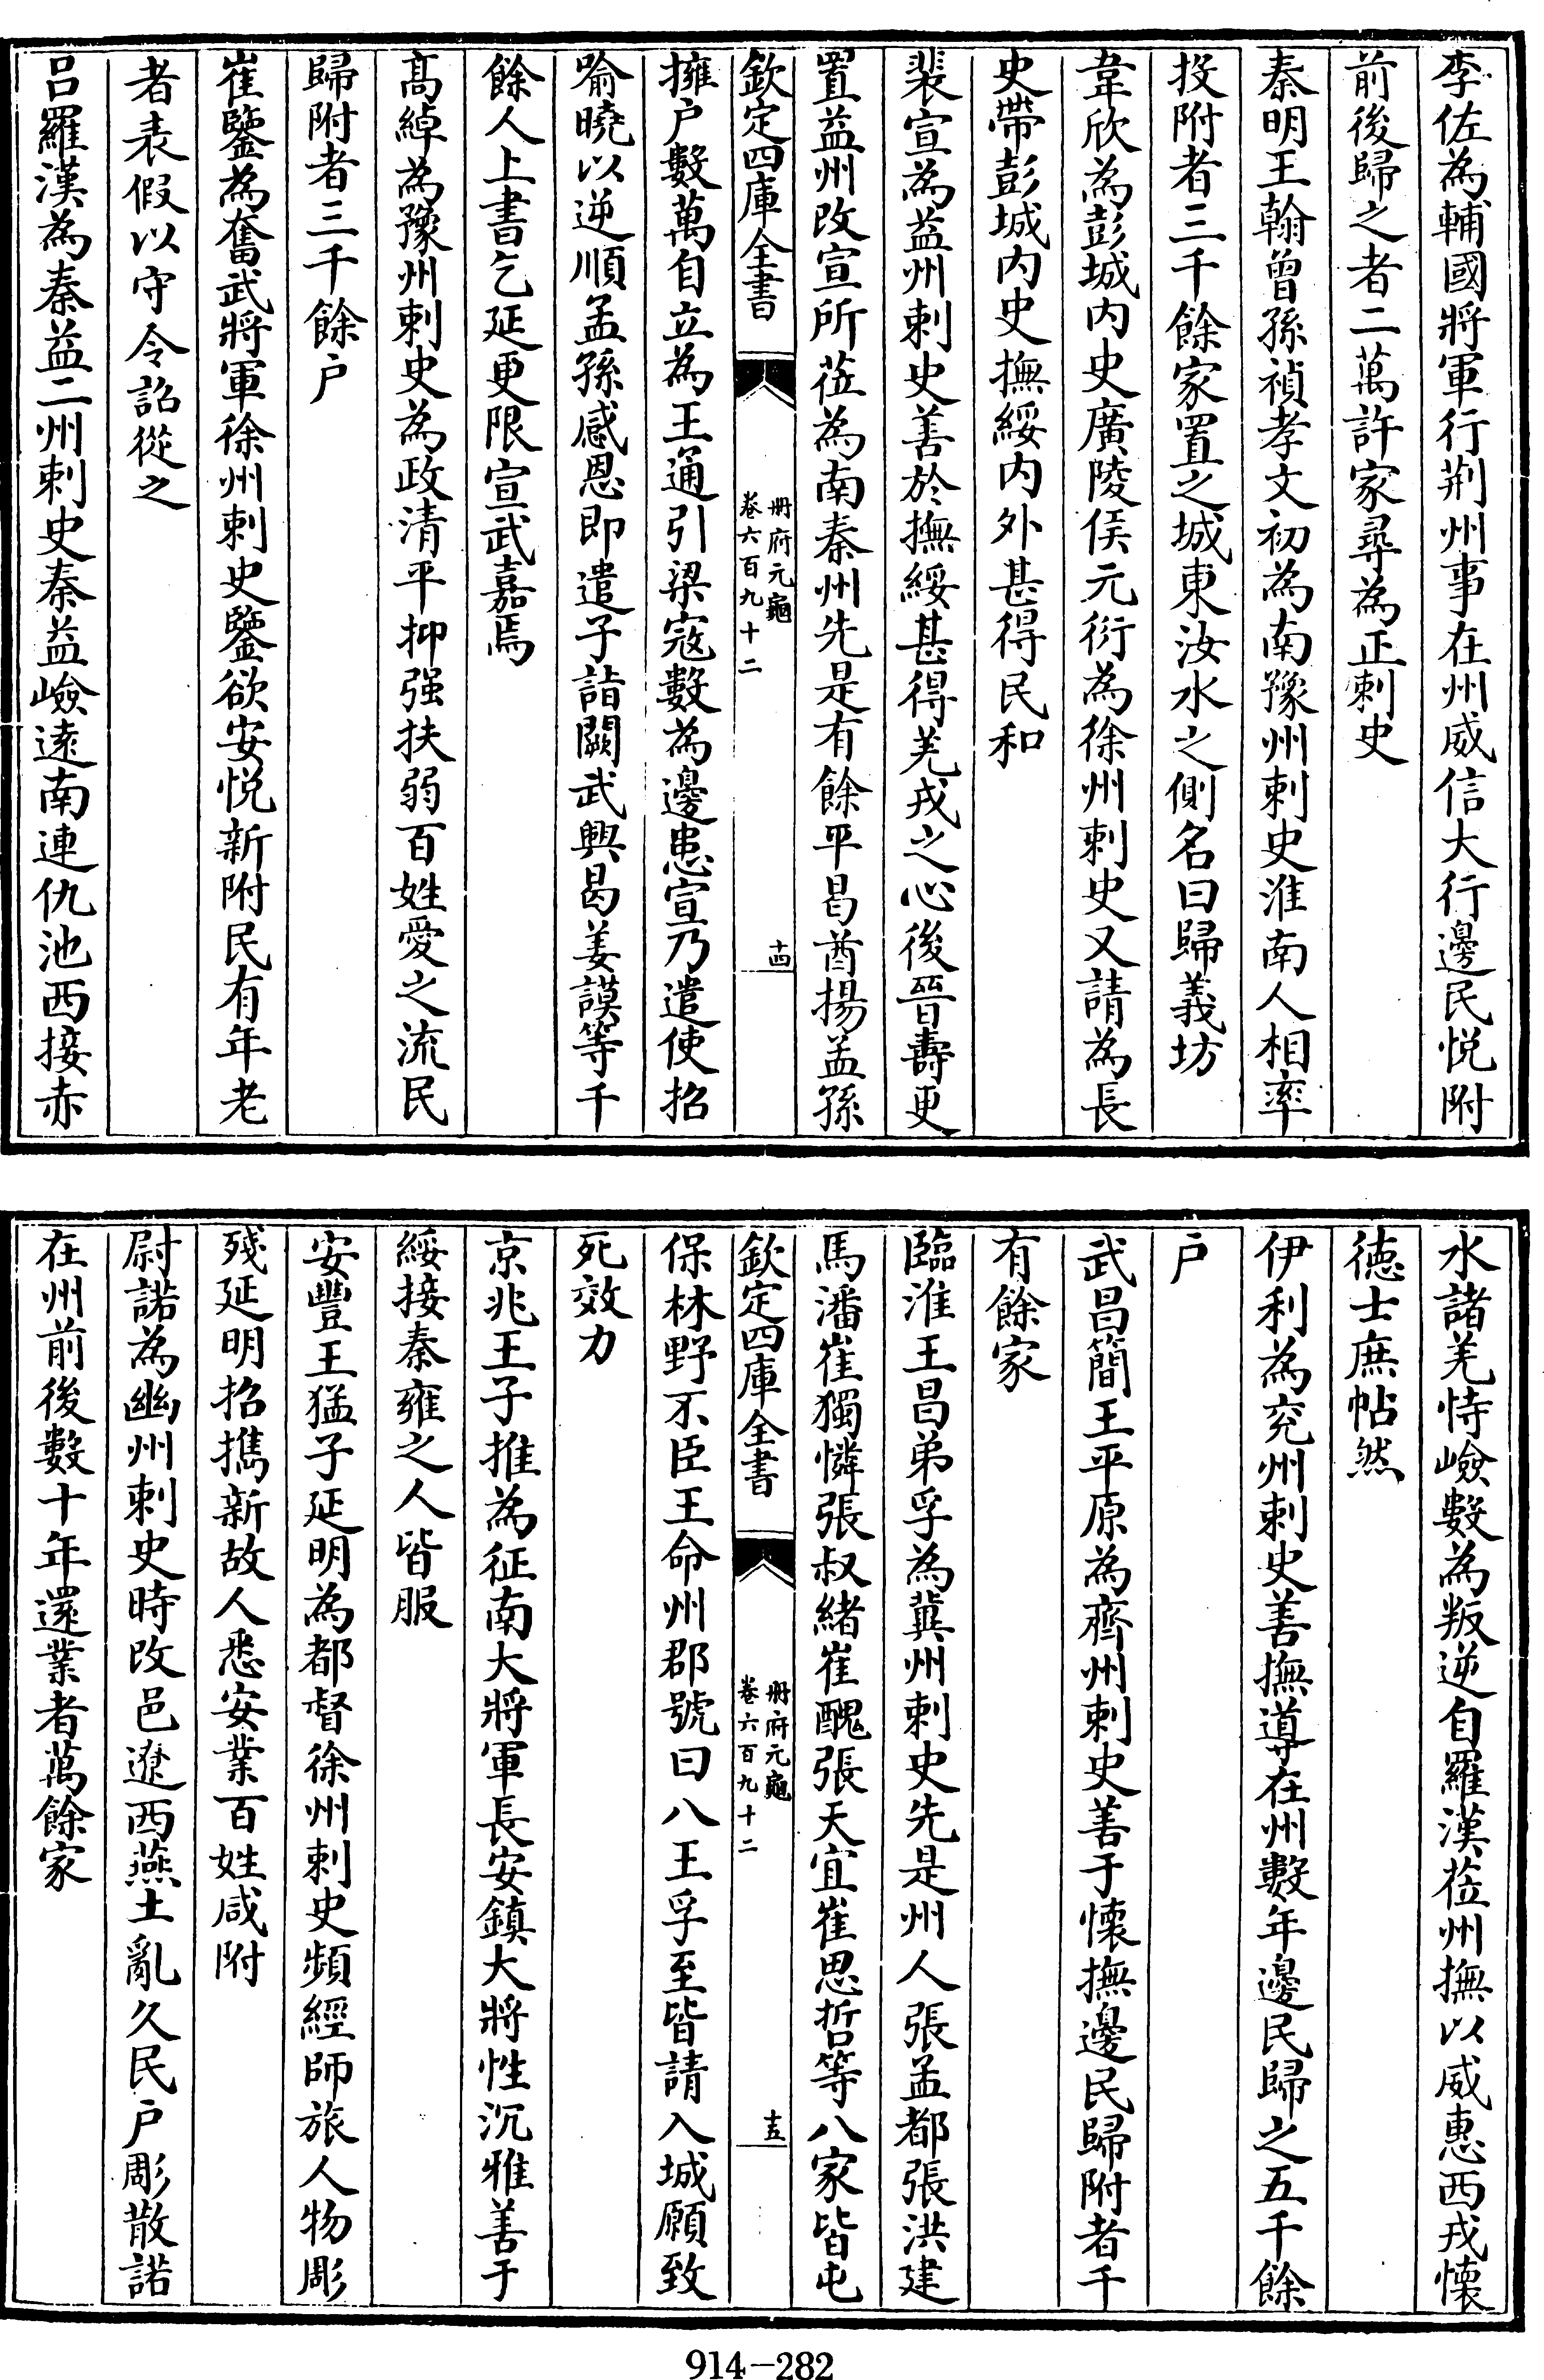 李佐為輔國將軍行荆州事在州威信大行邊民悦附
前後歸之者二萬許家尋為正刺史
秦明王翰曾孫禎孝文初為南豫州刺史淮南人相率
投附者三千餘家置之城東汝水之側名曰歸義坊
韋欣為彭城内史廣陵侯元衍為徐州刺史又請為長
史帶彭城内史撫綏内外甚得民和
裴宣為益州刺史善於撫綏甚得羌戎之心後晉壽更
置益州改宣所莅為南秦州先是有餘平昌酋揚孟孫
欽定四庫全書
册府元龜
卷六百九十二
十四
擁户數萬自立為王通引梁寇數為邊患宣乃遣使招
喻曉以逆順孟孫感恩即遣子詣闕武興曷姜謨等千
餘人上書乞延更限宣武嘉焉
高綽為豫州刺史為政清平抑强扶弱百姓愛之流民
歸附者三千餘户
崔鑒為奮武將軍徐州刺史鑒欲安悦新附民有年老
者表假以守令詔從之
吕羅漢為秦益二州刺史秦益嶮逺南連仇池西接赤
水諸羌恃嶮數為叛逆自羅漢莅州撫以威惠西戎懐
徳士庶帖然
伊利為兖州刺史善撫導在州數年邊民歸之五千餘
户
武昌簡王平原為齊州刺史善于懐撫邊民歸附者千
有餘家
臨淮王昌弟孚為冀州刺史先是州人張孟都張洪建
馬潘崔獨憐張叔緒崔醜張天宜崔思哲等八家皆屯
欽定四庫全書
册府元龜
卷六百九十二
十五
保林野不臣王命州郡號曰八王孚至皆請入城願致
死效力
京兆王子推為征南大將軍長安鎮大將性沉雅善于
綏接秦雍之人皆服
安豐王猛子延明為都督徐州刺史頻經師旅人物彫
殘延明招擕新故人悉安業百姓咸附
尉諾為幽州刺史時改邑遼西燕土亂久民户彫散諾
在州前後數十年還業者萬餘家
914-282